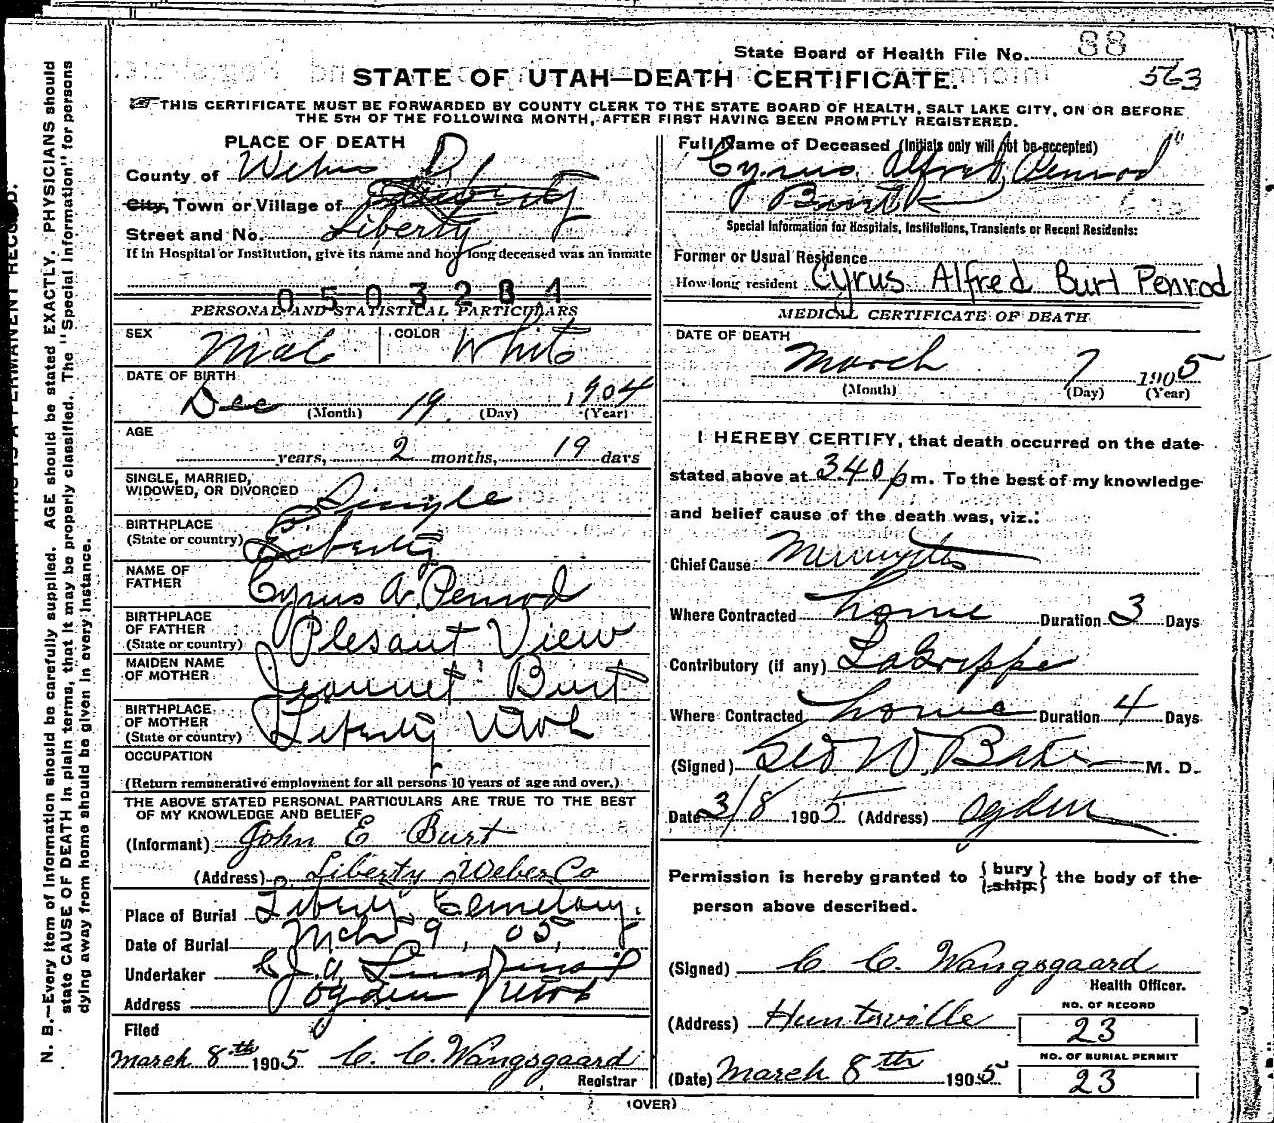 State Board of Health File No. 88
563
STATE OF UTAH—DEATH CERTIFICATE.
THIS CERTIFICATE MUST BE FORWARDED BY COUNTY CLERK TO THE STATE BOARD OF HEALTH, SALT LAKE CITY, ON OR BEFORE
THE 5TH OF THE FOLLOWING MONTH, AFTER FIRST HAVING BEEN PROMPTLY REGISTERED.
PLACE OF DEATH
County of Weber
City, Town or Village of Liberty
Street and No. Liberty
If in Hospital or Institution, give its name and how long deceased was an inmate
0503284
PERSONAL AND STATISTICAL PARTICULARS
SEX Male COLOR White
DATE OF BIRTH
Dec 19 1904
(Month) (Day) (Year)
AGE
years, 2 months, 19 days
SINGLE, MARRIED,
WIDOWED, OR DIVORCED Single
BIRTHPLACE
(State or country) Liberty
NAME OF
FATHER Cyrus A. Penrod
BIRTHPLACE
OF FATHER
(State or country) Plesant View
MAIDEN NAME
OF MOTHER Jeannet Burt
BIRTHPLACE
OF MOTHER
(State or country) Liberty Utah
OCCUPATION
(Return remunerative employment for all persons 10 years of age and over.)
THE ABOVE STATED PERSONAL PARTICULARS ARE TRUE TO THE BEST
OF MY KNOWLEDGE AND BELIEF
(Informant) John E Burt
(Address) Liberty Weber Co
Place of Burial Liberty Cemetary.
Date of Burial Mch 9, 05,
Undertaker
Address Ogden Utah
Filed
March 8th 1905 C. C. Wangsgaard
Registrar
Full Name of Deceased (Initials only will not be accepted)
Cyrus Alfred Penrod
Burt
Special Information for Hospitals, Institutions, Transients or Recent Residents:
Former or Usual Residence
How long resident Cyrus Alfred Burt Penrod
MEDICAL CERTIFICATE OF DEATH
DATE OF DEATH
March 7 1905
(Month) (Day) (Year)
I HEREBY CERTIFY, that death occurred on the date
stated above at 3.40 p m. To the best of my knowledge
and belief cause of the death was, viz.:
Chief Cause
Where Contracted home Duration 3 Days
Contributory (if any) La Grippe
Where Contracted home Duration 4 Days
(Signed) Geo W. Baker M. D.
Date 3/8 1905 (Address) Ogden
Permission is hereby granted to {bury / ship} the body of the
person above described.
(Signed) C. C. Wangsgaard
Health Officer.
(Address) Huntsville
NO. OF RECORD
23
(Date) March 8th 1905
NO. OF BURIAL PERMIT
23
(OVER)
N. B.—Every item of information should be carefully supplied. AGE should be stated EXACTLY. PHYSICIANS should
state CAUSE OF DEATH in plain terms, that it may be properly classified. The "Special Information" for persons
dying away from home should be given in every instance.
THIS IS A PERMANENT RECORD.